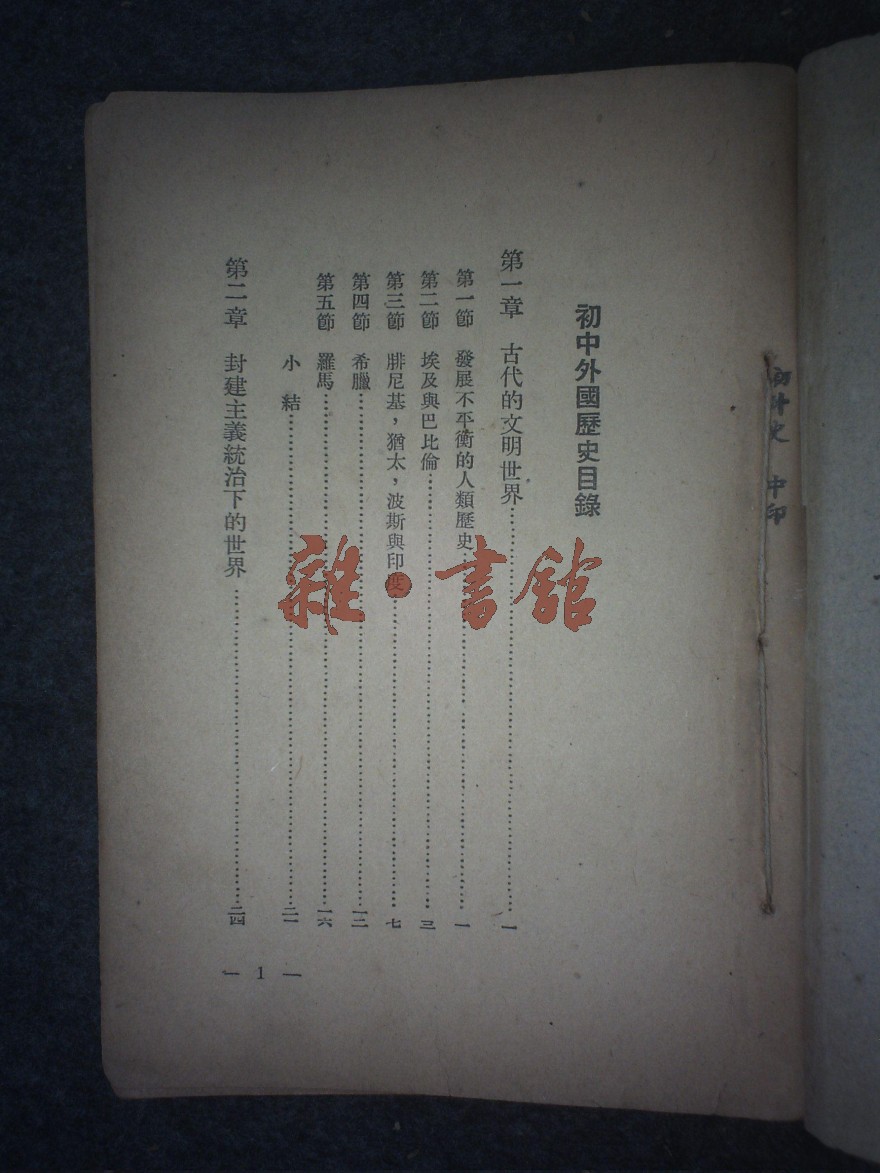 初中外國歷史目錄
第一章 古代的文明世界……………一
第一節 發展不平衡的人類歷史……………一
第二節 埃及與巴比倫……………三
第三節 腓尼基，猶太，波斯與印度……………七
第四節 希臘……………一二
第五節 羅馬……………一六
小結……………二一
第二章 封建主義統治下的世界……………二四
— 1 —
雜·書館
中印